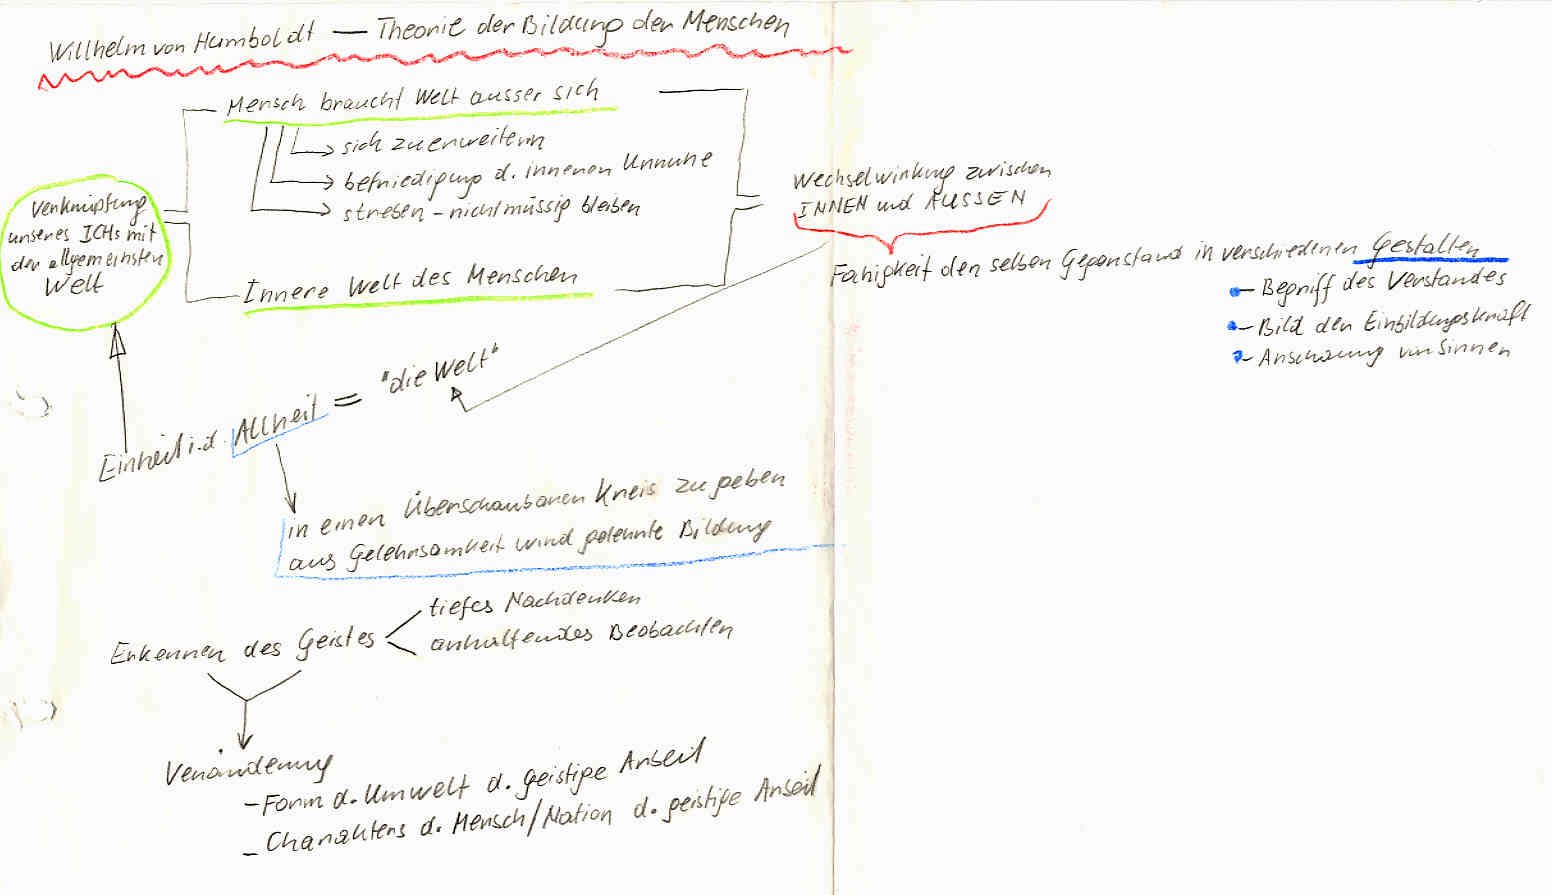 Willhelm von Humboldt — Theorie der Bildung der Menschen
Mensch braucht Welt ausser sich
sich zu erweitern
befriedigung d. inneren Unruhe
streben - nicht müssig bleiben
Verknüpfung
unseres ICHs mit
der allgemeinsten
Welt
Innere Welt des Menschen
Wechselwirkung zwischen
INNEN und AUSSEN
Fähigkeit den selben Gegenstand in verschiedenen Gestalten
- Begriff des Verstandes
- Bild der Einbildungskraft
- Anschauung von Sinnen
Einheit i. d. Allheit = "die Welt"
in einen Überschaubaren Kreis zu geben
aus Gelehrsamkeit wird gelehrte Bildung
Erkennen des Geistes
tiefes Nachdenken
anhaltendes Beobachten
Veränderung
- Form d. Umwelt d. geistige Arbeit
- Charakters d. Mensch/Nation d. geistige Arbeit